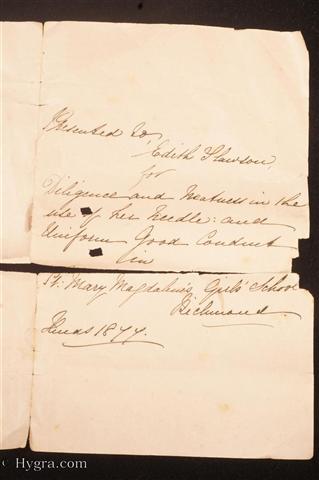 Presented to
Edith Slawson
for
Diligence and Neatness in the
use of her Needle: and
Uniform Good Conduct
in
St. Mary Magdalene's Girls' School
Richmond
Xmas 1877.
© Hygra.com